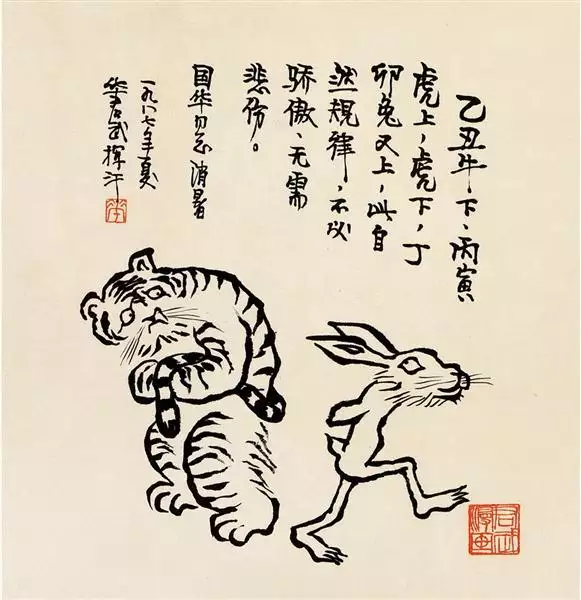 乙丑牛下、丙寅
虎上，虎下，丁
卯兔又上，此自
然规律，不必
骄傲、无需
悲伤。
国华同志消暑
一九八七年夏
华君武挥汗
华
君武漫画